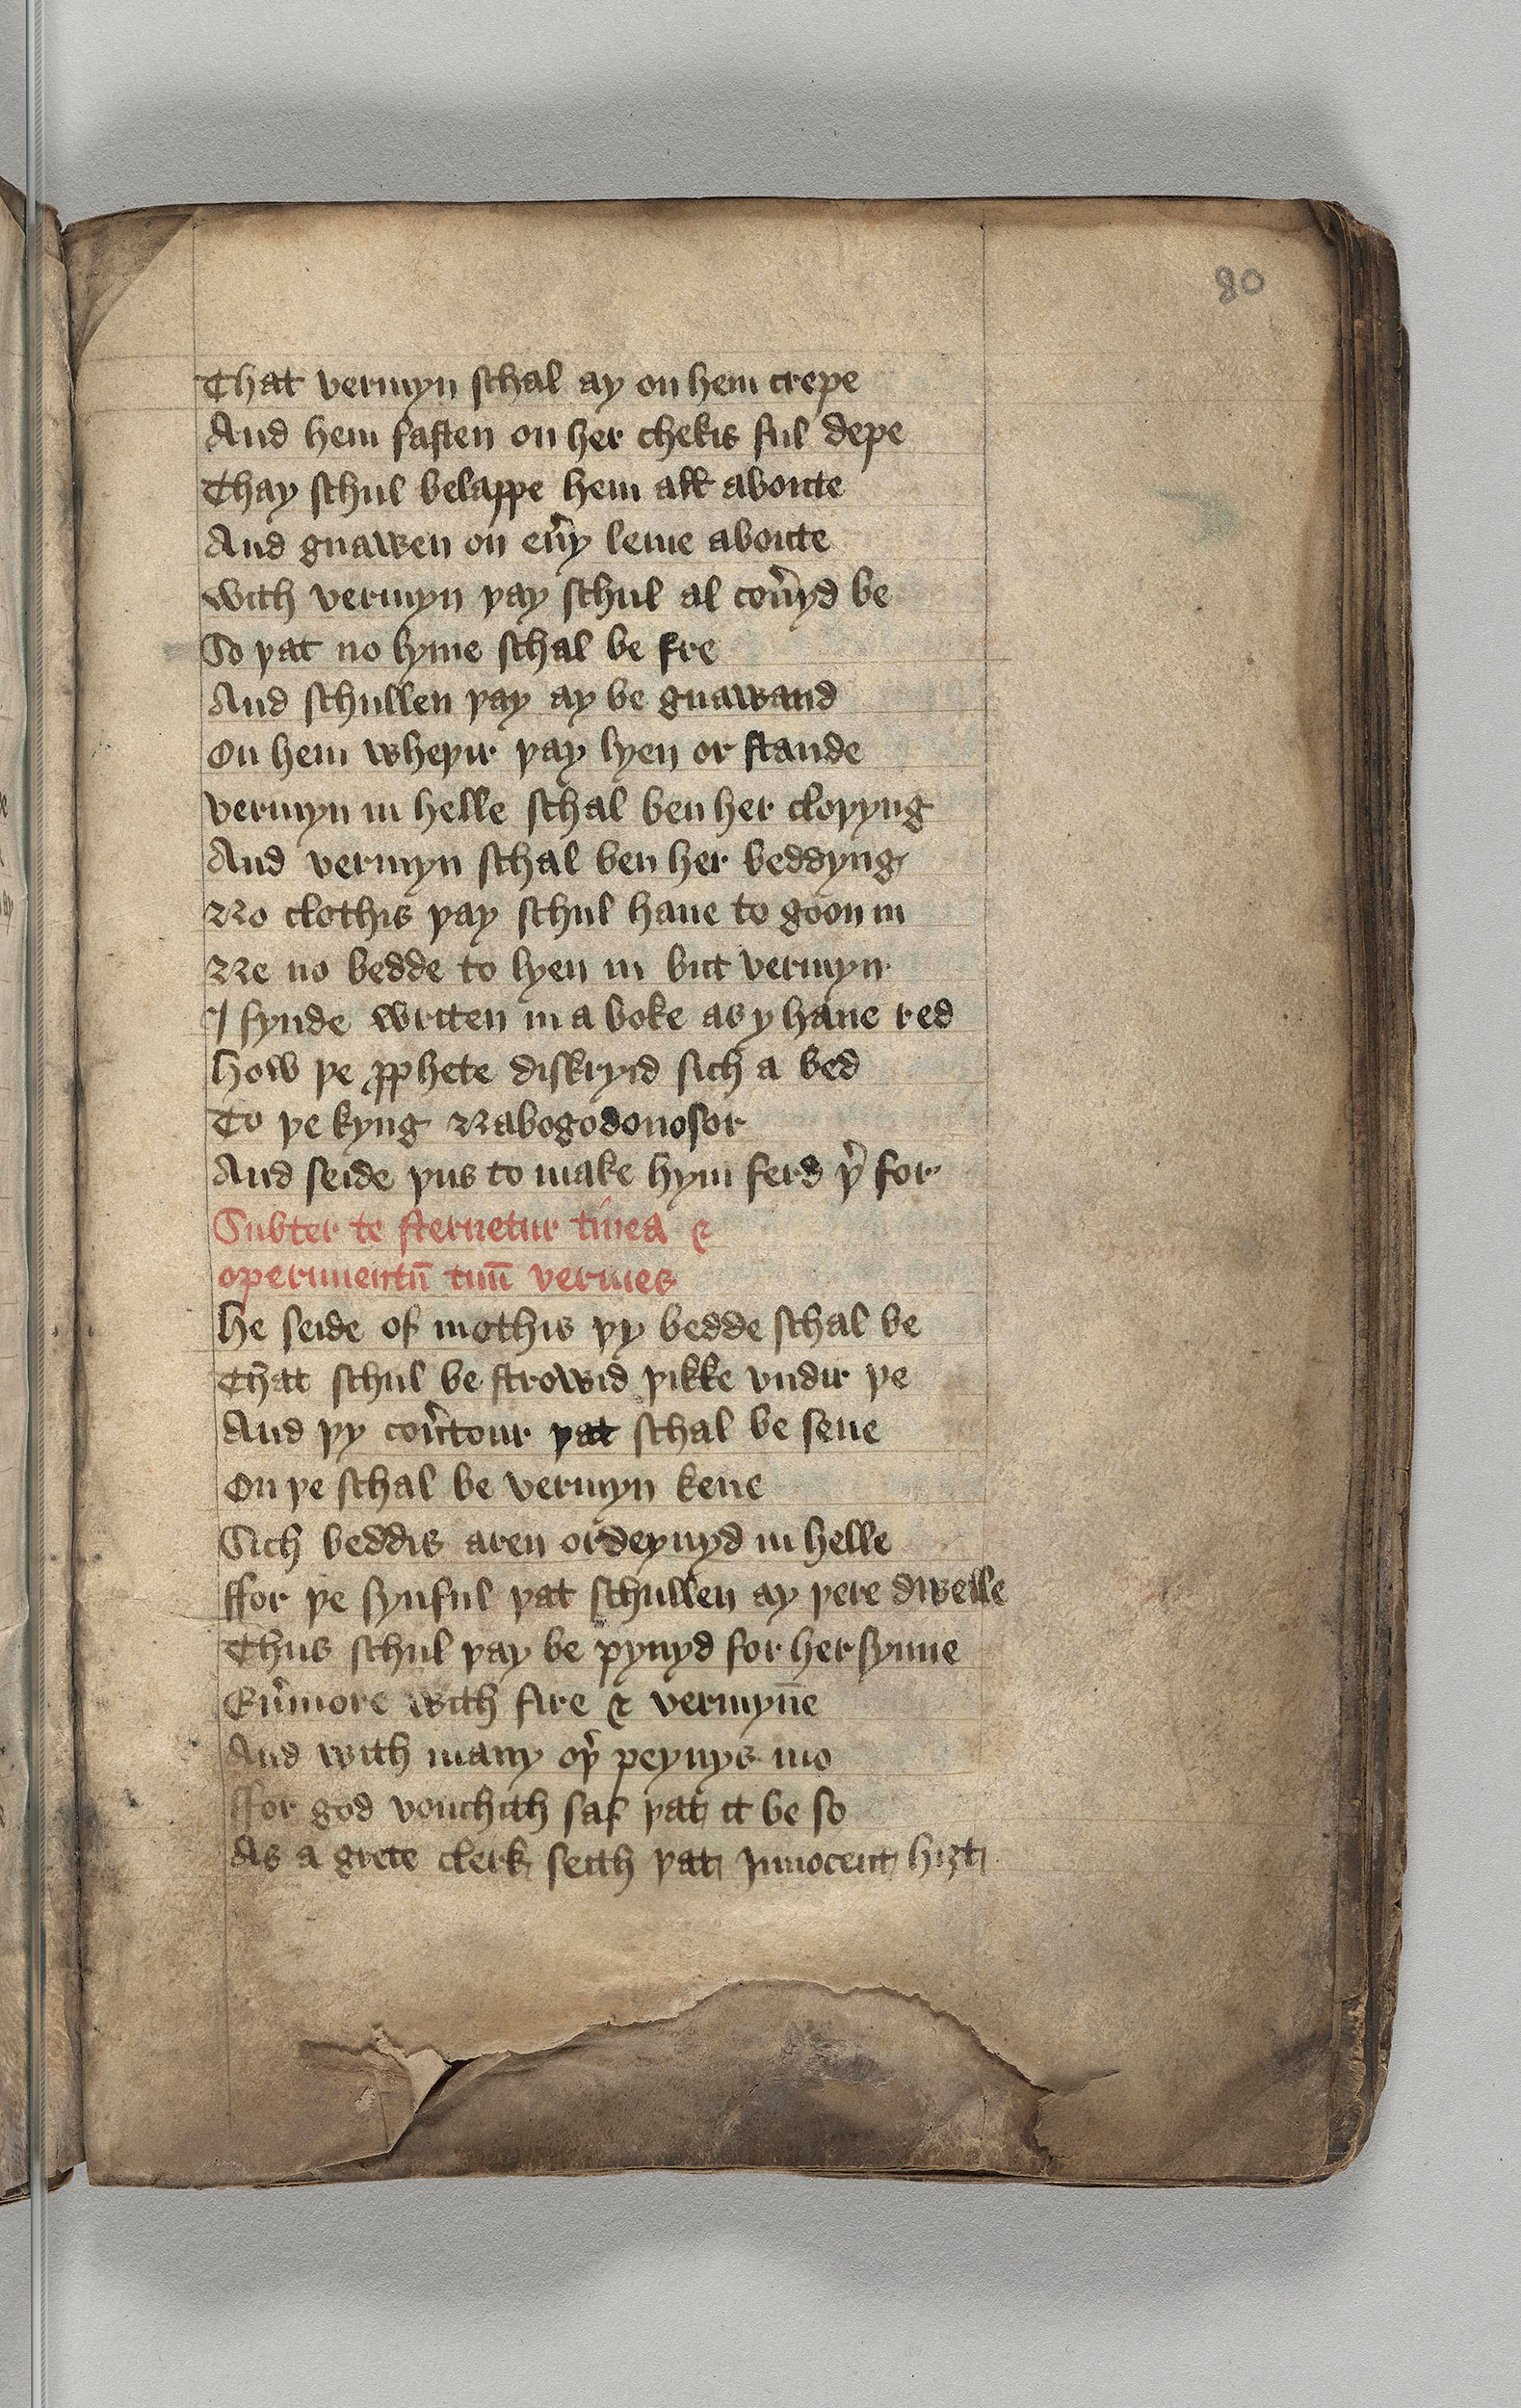 80
That vermyn schal ay on hem crepe
And hem fasten on her chekis ful depe
Thay schul belappe hem all aboute
And gnawen on eu̾y leme aboute
With vermyn þay schul al cou̾yd be
So þat no lyme schal be fre
And schullen þay ay be gnawand
On hem wheþir þay lyen or stande
Vermyn in helle schal ben her cloþyng
And vermyn schal ben her beddyng
No clothis þay schul haue to goon in
Ne no bedde to lyen in but vermyn
I fynde writen in a boke as y haue red
How þe ꝓphete diskryid sich a bed
To þe kyng Nabogodonosor
And seide þus to make hym ferd þ̾ for
Subter te sternetur tinea &
operimentū tuū vermes
He seide of mothis þy bedde schal be
That schul be strowid þikke vndir þe
And þy cou̾tour þat schal be sene
On þe schal be vermyn kene
Sich beddis aren ordeynyd in helle
ffor þe synful þat schullen ay þere dwelle
Thus schul þay be pynyd for her synne
Eu̾more with fire & vermyn̄e
And with many oþ̾ peynys mo
ffor god vouchith saf þat it be so
As a grete clerk seith þat Innocent hiȝt